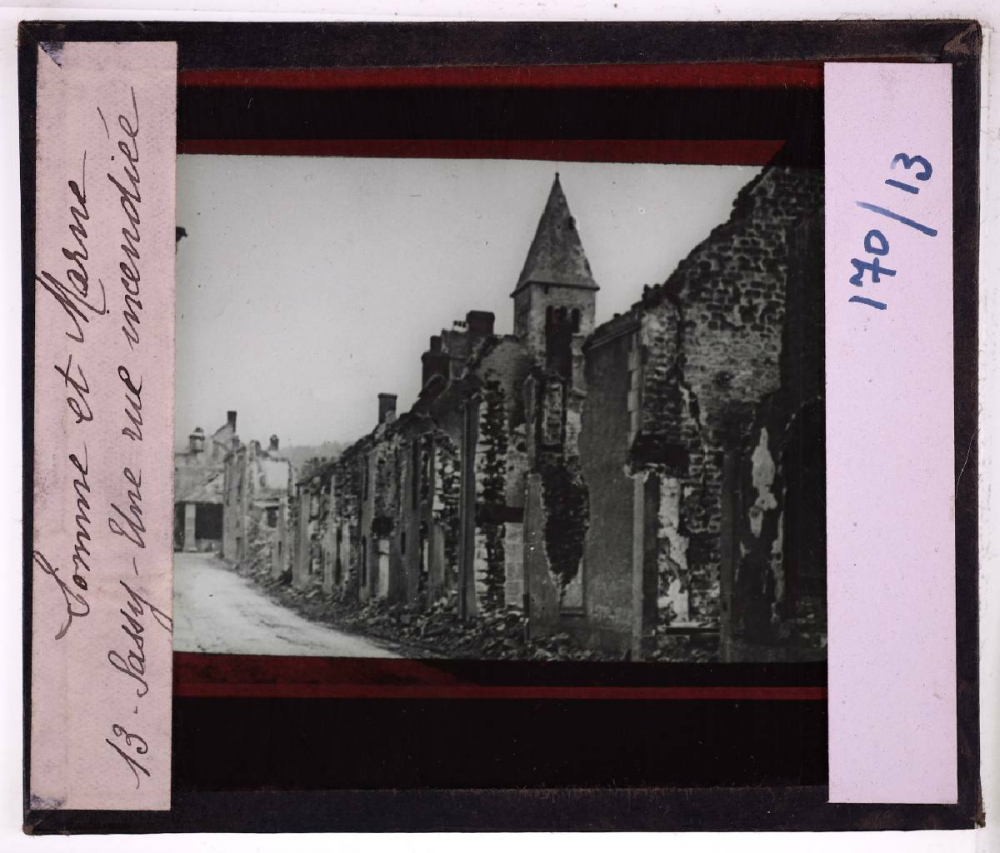 Somme et Marne
13 - Sassy - Une rue incendiée
170/13